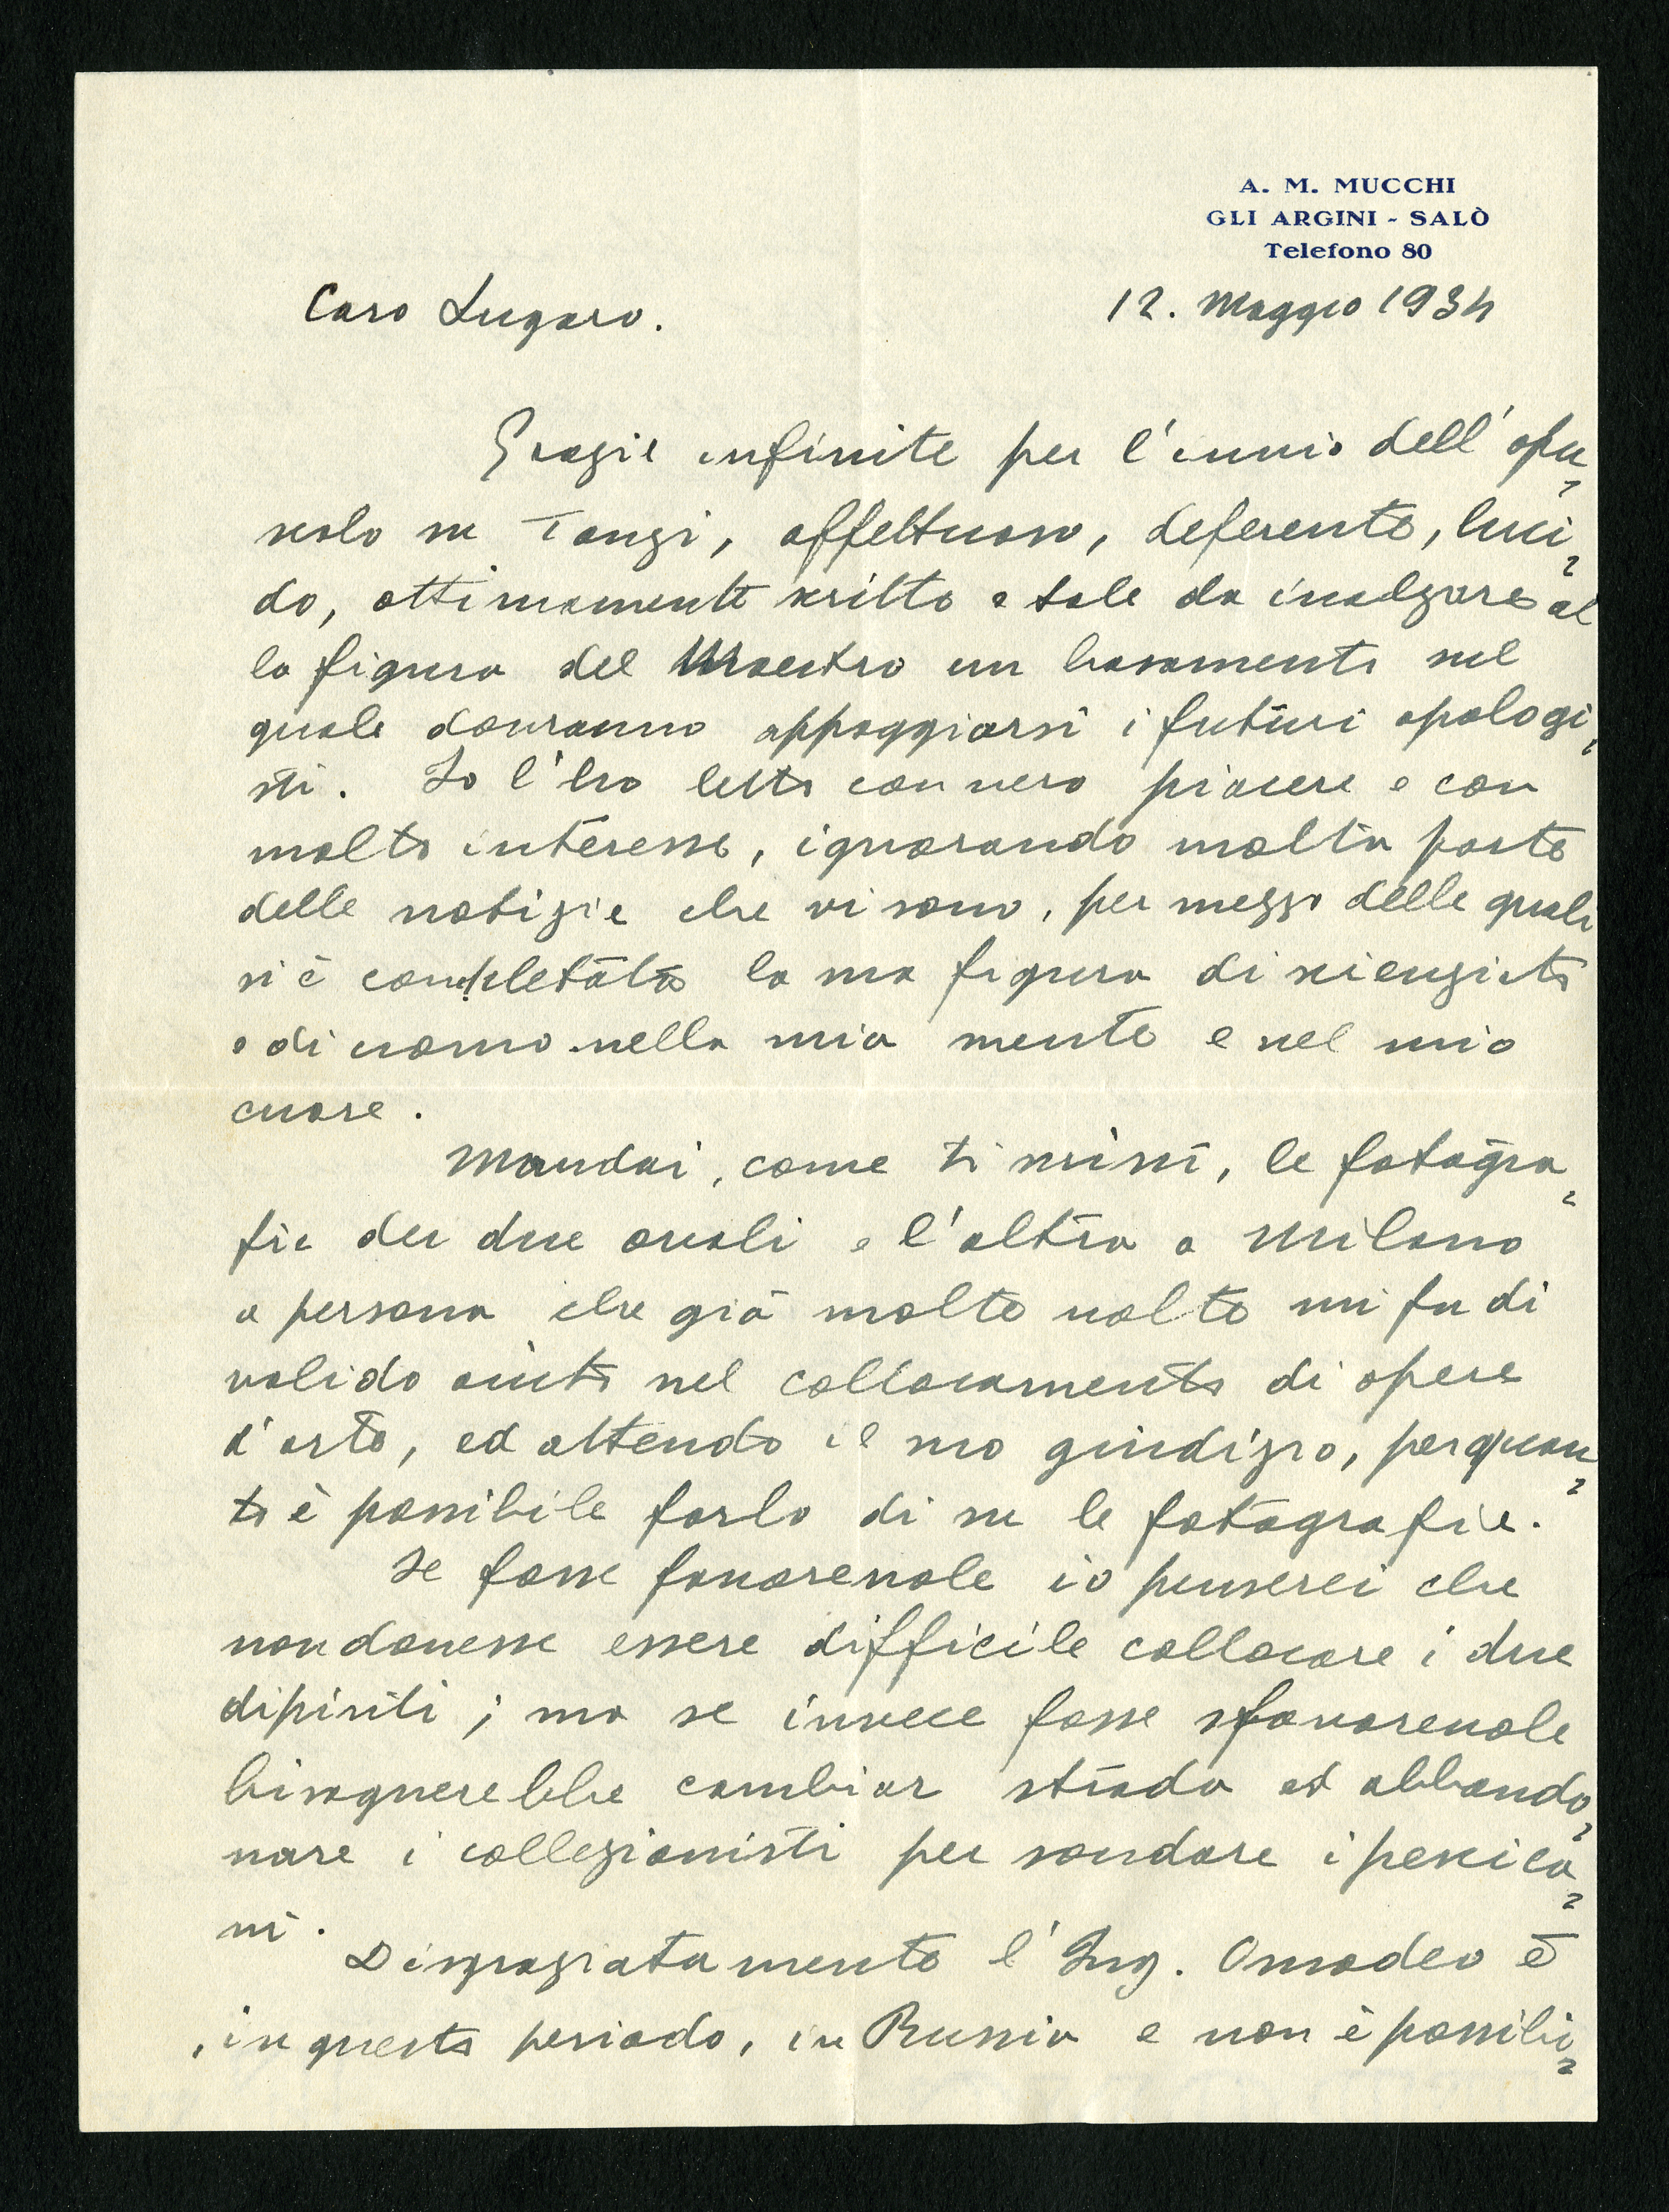 A. M. MUCCHI
GLI ARGINI - SALÒ
Telefono 80
12. Maggio 1934
Caro Lugaro.
Grazie infinite per l'invio dell'opu-
scolo su Tanzi, affettuoso, deferente, luci-
do, ottimamente scritto e tale da inalzare al
la figura del Maestro un basamento sul
quale dovranno appoggiarsi i futuri apologi-
sti. Io l'ho letto con vero piacere e con
molto interesse, ignorando molta parte
delle notizie che vi sono, per mezzo delle quali
si è completata la sua figura di scienziato
e di uomo nella mia mente e nel mio
cuore.
Mandai, come ti scrissi, le fotogra-
fie dei due ovali e l'altra a Milano
a persona che già molte volte mi fu di
valido aiuto nel collocamento di opere
d'arte, ed attendo il suo giudizio, per quan-
to è possibile farlo di su le fotografie.
Se fosse favorevole io penserei che
non dovesse essere difficile collocare i due
dipinti; ma se invece fosse sfavorevole
bisognerebbe cambiar strada ed abbando-
nare i collezionisti per sondare i pescica-
ni.
Disgraziatamente l'Ing. Omodeo è
, in questo periodo, in Russia e non è possibi-